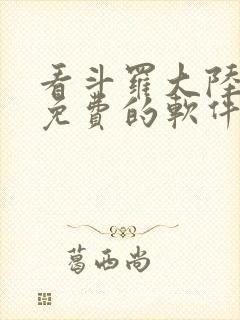 看斗羅大陸
免費的軟件
葛西尚